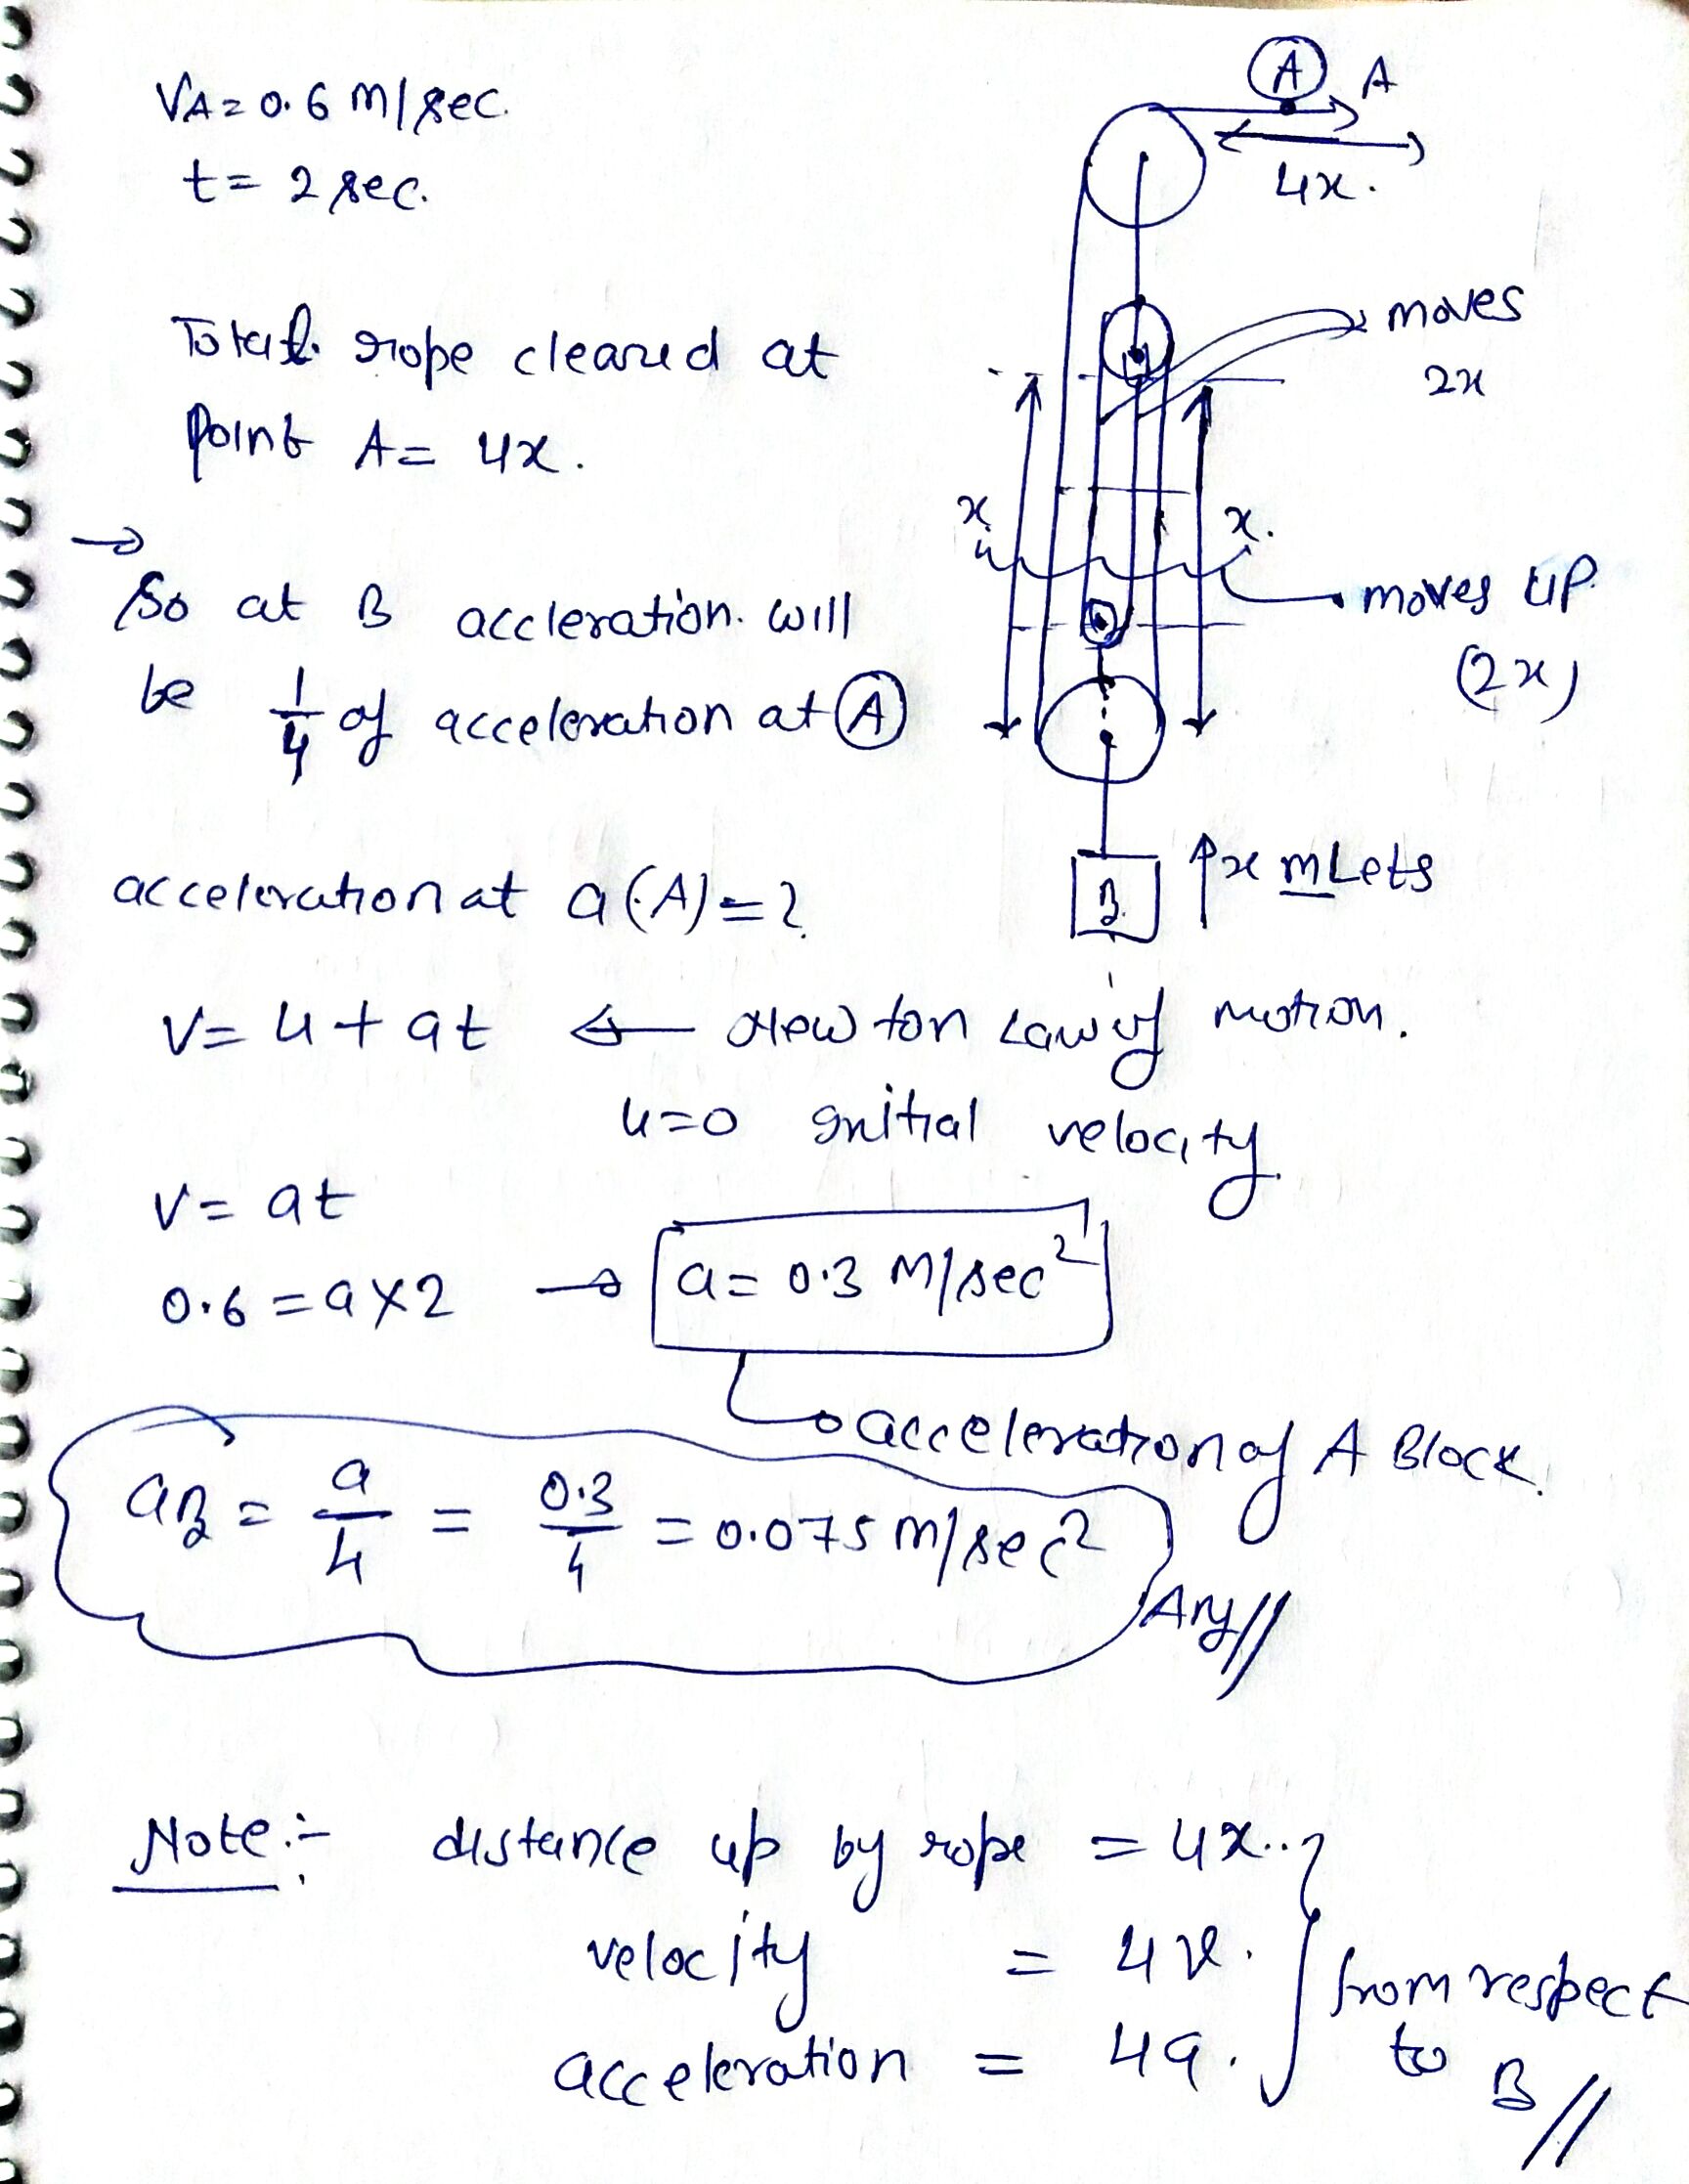 VA = 0.6 m/sec.
t = 2 sec.
A
A
4x.
moves
2x
Total rope cleared at
point A = 4x.
x
x.
→
So at B accleration. will
be 1/4 of acceleration at A
moves up.
(2x)
B.
↑x m Lets
acceleration at a(A) = ?
v = u + at ← Newton Law of motion.
u = 0 initial velocity
v = at
0.6 = a × 2 → a = 0.3 m/sec²
acceleration of A Block.
aB = a/4 = 0.3/4 = 0.075 m/sec²
Ans//
Note :- distance up by rope = 4x..
velocity = 4v.
acceleration = 4a.
from respect
to B//